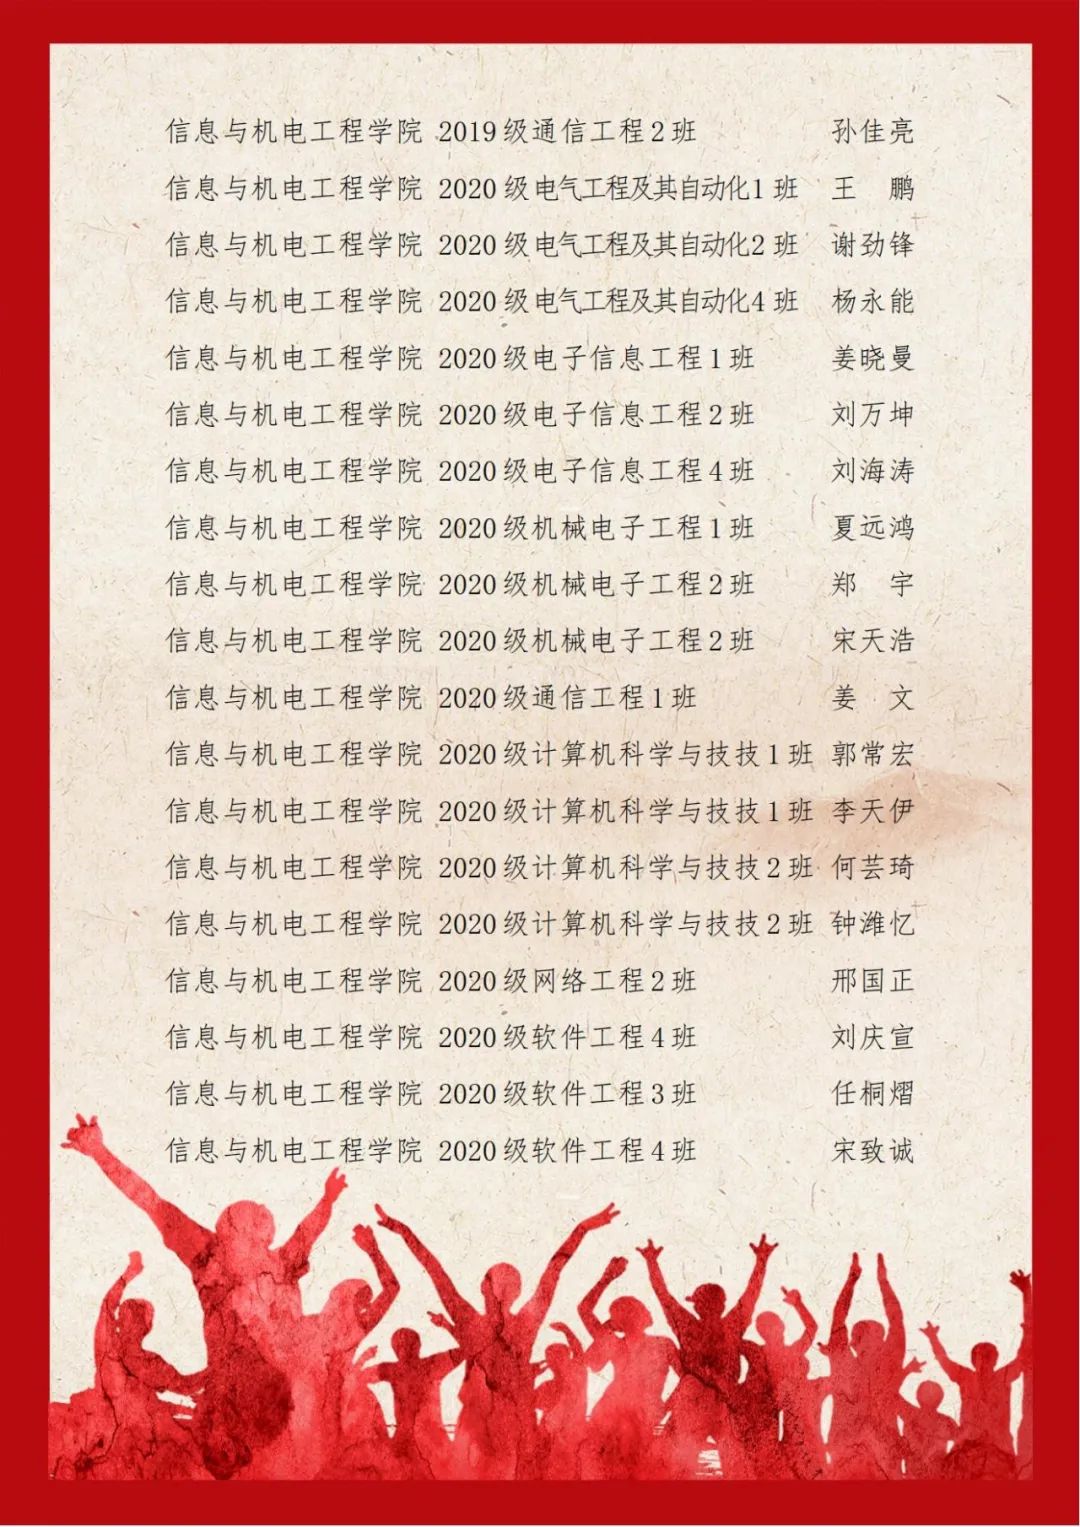 信息与机电工程学院 2019级通信工程2班 孙佳亮
信息与机电工程学院 2020级电气工程及其自动化1班 王 鹏
信息与机电工程学院 2020级电气工程及其自动化2班 谢劲锋
信息与机电工程学院 2020级电气工程及其自动化4班 杨永能
信息与机电工程学院 2020级电子信息工程1班 姜晓曼
信息与机电工程学院 2020级电子信息工程2班 刘万坤
信息与机电工程学院 2020级电子信息工程4班 刘海涛
信息与机电工程学院 2020级机械电子工程1班 夏远鸿
信息与机电工程学院 2020级机械电子工程2班 郑 宇
信息与机电工程学院 2020级机械电子工程2班 宋天浩
信息与机电工程学院 2020级通信工程1班 姜 文
信息与机电工程学院 2020级计算机科学与技技1班 郭常宏
信息与机电工程学院 2020级计算机科学与技技1班 李天伊
信息与机电工程学院 2020级计算机科学与技技2班 何芸琦
信息与机电工程学院 2020级计算机科学与技技2班 钟潍忆
信息与机电工程学院 2020级网络工程2班 邢国正
信息与机电工程学院 2020级软件工程4班 刘庆宣
信息与机电工程学院 2020级软件工程3班 任桐熠
信息与机电工程学院 2020级软件工程4班 宋致诚